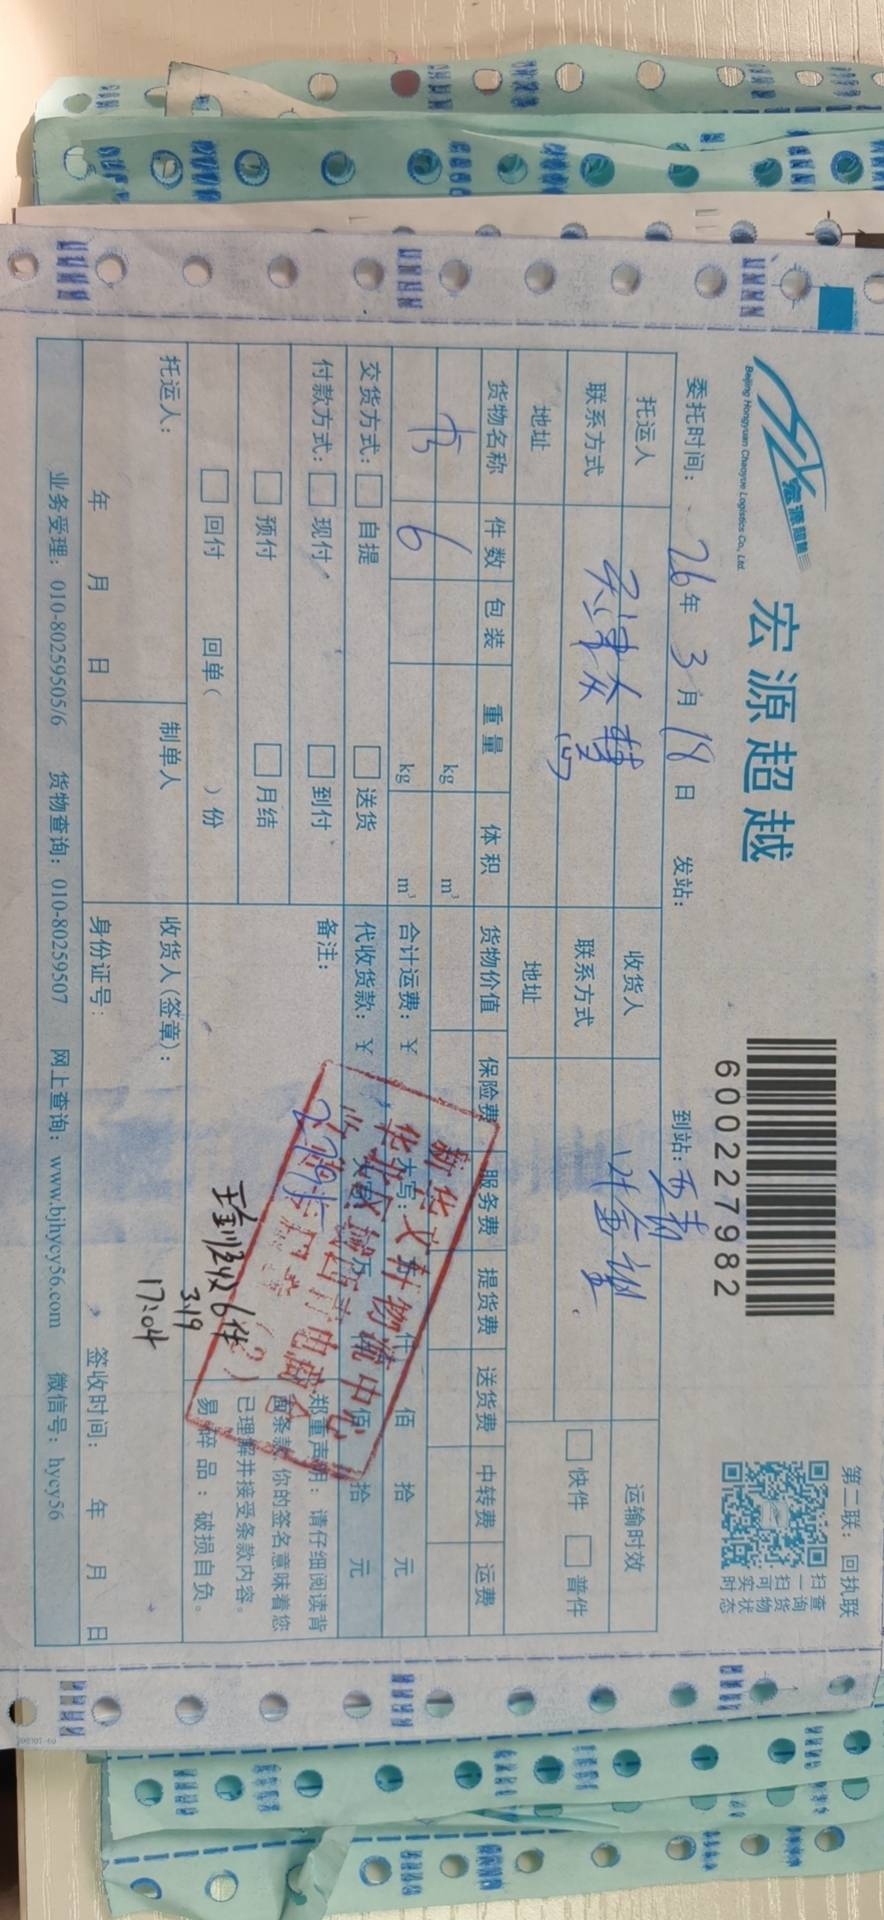 宏源超越
Beijing Hongyuan Chaoyue Logistics Co., Ltd.
宏源超越
6002279822
第二联：回执联
扫一扫可实时
查询货物状态
委托时间：26年3月18日
发站：
到站：西青
托运人
收货人
运输时效
联系方式
天津众
联系方式
快件
普件
地址
地址
货物名称
件数
包装
重量
体积
货物价值
保险费
服务费
提货费
送货费
中转费
运费
kg
m³
书
6
kg
m³
合计运费：¥
大写：
万
仟
佰
拾
元
交货方式：
自提
送货
代收货款：¥
佰
拾
元
付款方式：
现付
到付
备注：
预付
月结
回付
回单（ ）份
郑重声明：请仔细阅读背
面条款，你的签名意味着您
已理解并接受条款内容。
易碎品：破损自负。
新华文轩物流中心
华北
实收6件
3.19
17:04
托运人：
制单人
收货人(签章)：
年 月 日
身份证号：
签收时间： 年 月 日
业务受理：010-80259505/6 货物查询：010-80259507 网上查询：www.bjhycy56.com 微信号：hycy56